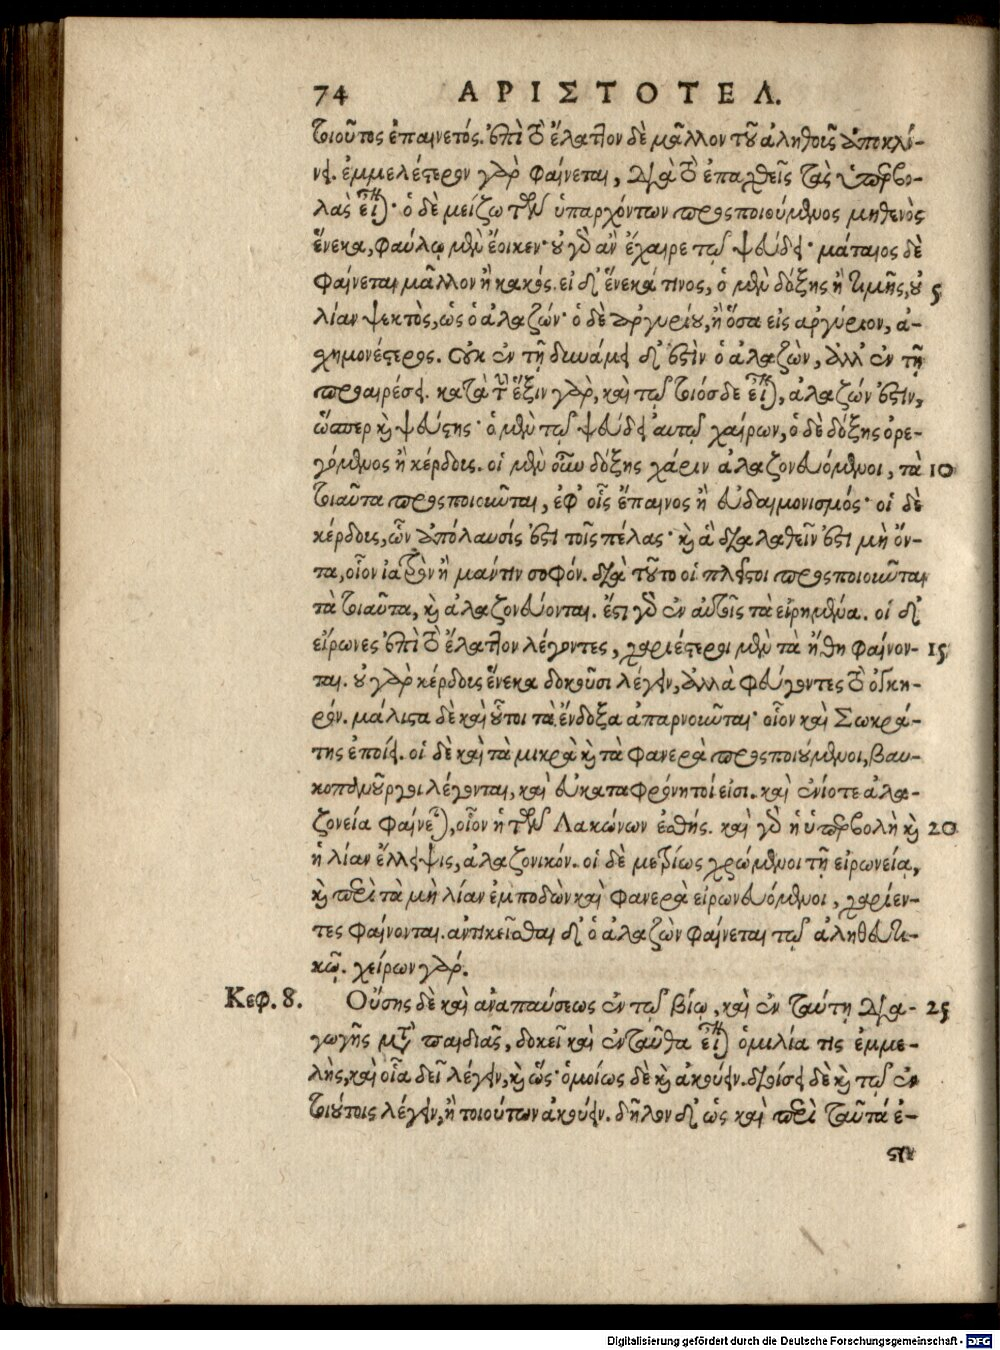 74 ΑΡΙΣΤΟΤΕΛ.
τοιοῦτος ἐπαινετός. ἐπὶ τὸ ἔλαττον δὲ μᾶλλον τοῦ ἀληθοῦς ἀποκλί-
νει. ἐμμελέστερον γὰρ φαίνεται, διὰ τὸ ἐπαχθεῖς τὰς ὑπερβο-
λὰς εἶναι· ὁ δὲ μείζω τῶν ὑπαρχόντων προσποιούμενος μηθενὸς
ἕνεκα, φαύλῳ μὲν ἔοικεν· οὐ γὰρ ἂν ἔχαιρε τῷ ψεύδει· μάταιος δὲ
φαίνεται μᾶλλον ἢ κακός. εἰ δ' ἕνεκά τινος, ὁ μὲν δόξης ἢ τιμῆς, οὐ 5
λίαν ψεκτὸς, ὡς ὁ ἀλαζών· ὁ δὲ ἀργυρίου, ἢ ὅσα εἰς ἀργύριον, ἀ-
σχημονέστερος. Οὐκ ἐν τῇ δυνάμει δ' ἐστὶν ὁ ἀλαζὼν, ἀλλ' ἐν τῇ
προαιρέσει. κατὰ τὴν ἕξιν γὰρ, καὶ τῷ τοιόσδε εἶναι, ἀλαζών ἐστιν,
ὥσπερ καὶ ψεύστης· ὁ μὲν τῷ ψεύδει αὐτῷ χαίρων, ὁ δὲ δόξης ὀρε-
γόμενος ἢ κέρδους. οἱ μὲν οὖν δόξης χάριν ἀλαζονευόμενοι, τὰ 10
τοιαῦτα προσποιοῦνται, ἐφ' οἷς ἔπαινος ἢ εὐδαιμονισμός· οἱ δὲ
κέρδους, ὧν ἀπόλαυσίς ἐστι τοῖς πέλας· καὶ ἃ διαλαθεῖν ἔστι μὴ ὄν-
τα, οἷον ἰατρὸν ἢ μάντιν σοφόν. διὰ τοῦτο οἱ πλεῖστοι προσποιοῦνται
τὰ τοιαῦτα, καὶ ἀλαζονεύονται. ἔστι γὰρ ἐν αὐτοῖς τὰ εἰρημένα. οἱ δ'
εἴρωνες ἐπὶ τὸ ἔλαττον λέγοντες, χαριέστεροι μὲν τὰ ἤθη φαίνον- 15
ται. οὐ γὰρ κέρδους ἕνεκα δοκοῦσι λέγειν, ἀλλὰ φεύγοντες τὸ ὀγκη-
ρόν. μάλιστα δὲ καὶ οὗτοι τὰ ἔνδοξα ἀπαρνοῦνται· οἷον καὶ Σωκρά-
της ἐποίει. οἱ δὲ καὶ τὰ μικρὰ καὶ τὰ φανερὰ προσποιούμενοι, βαυ-
κοπανοῦργοι λέγονται, καὶ εὐκαταφρόνητοί εἰσι. καὶ ἐνίοτε ἀλα-
ζονεία φαίνεται, οἷον ἡ τῶν Λακώνων ἐσθής. καὶ γὰρ ἡ ὑπερβολὴ καὶ 20
ἡ λίαν ἔλλειψις, ἀλαζονικόν. οἱ δὲ μετρίως χρώμενοι τῇ εἰρωνείᾳ,
καὶ περὶ τὰ μὴ λίαν ἐμποδὼν καὶ φανερὰ εἰρωνευόμενοι, χαρίεν-
τες φαίνονται. ἀντικεῖσθαι δ' ὁ ἀλαζὼν φαίνεται τῷ ἀληθευτι-
κῷ. χείρων γάρ.
Κεφ. 8. Οὔσης δὲ καὶ ἀναπαύσεως ἐν τῷ βίῳ, καὶ ἐν ταύτῃ δια- 25
γωγῆς μετὰ παιδιᾶς, δοκεῖ καὶ ἐνταῦθα εἶναι ὁμιλία τις ἐμμε-
λὴς, καὶ οἷα δεῖ λέγειν, καὶ ὥς· ὁμοίως δὲ καὶ ἀκούειν. διοίσει δὲ καὶ τῷ ἐν
τοιούτοις λέγειν, ἢ τοιούτων ἀκούειν. δῆλον δ' ὡς καὶ περὶ ταῦτά ἐ-
στιν
Digitalisierung gefördert durch die Deutsche Forschungsgemeinschaft - DFG